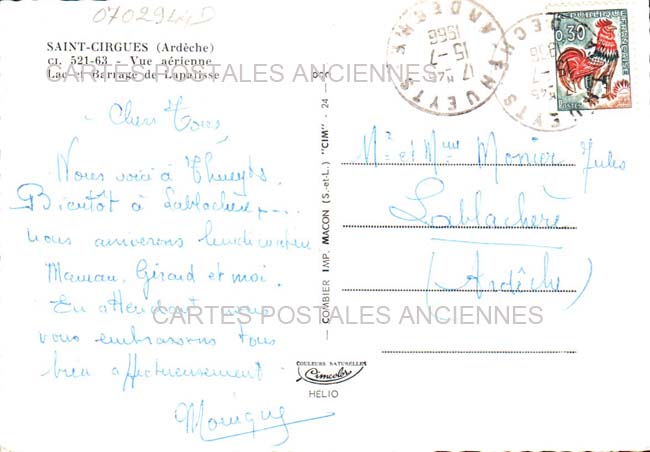 0702944D
SAINT-CIRGUES (Ardèche)
CI. 521-63 - Vue aérienne
Lac et Barrage de Lapalisse
CARTES POSTALES ANCIENNES
Chers Tous,
Nous voici à Thueyts.
Bientôt à Lablachère....
nous arriverons lundi matin
Maman, Gérard et moi.
En attendant nous
vous embrassons tous
bien affectueusement.
Monique
CARTES POSTALES ANCIENNES
COMBIER IMP. MACON (S.-et-L.) "CIM" - 24 -
COULEURS NATURELLES
Cimcolor
HELIO
THUEYTS
ARDECHE
17 H45
15-7
1966
REPUBLIQUE FRANÇAISE
0,30
POSTES
Mr et Mme Monier Jules
Lablachère
(Ardèche)